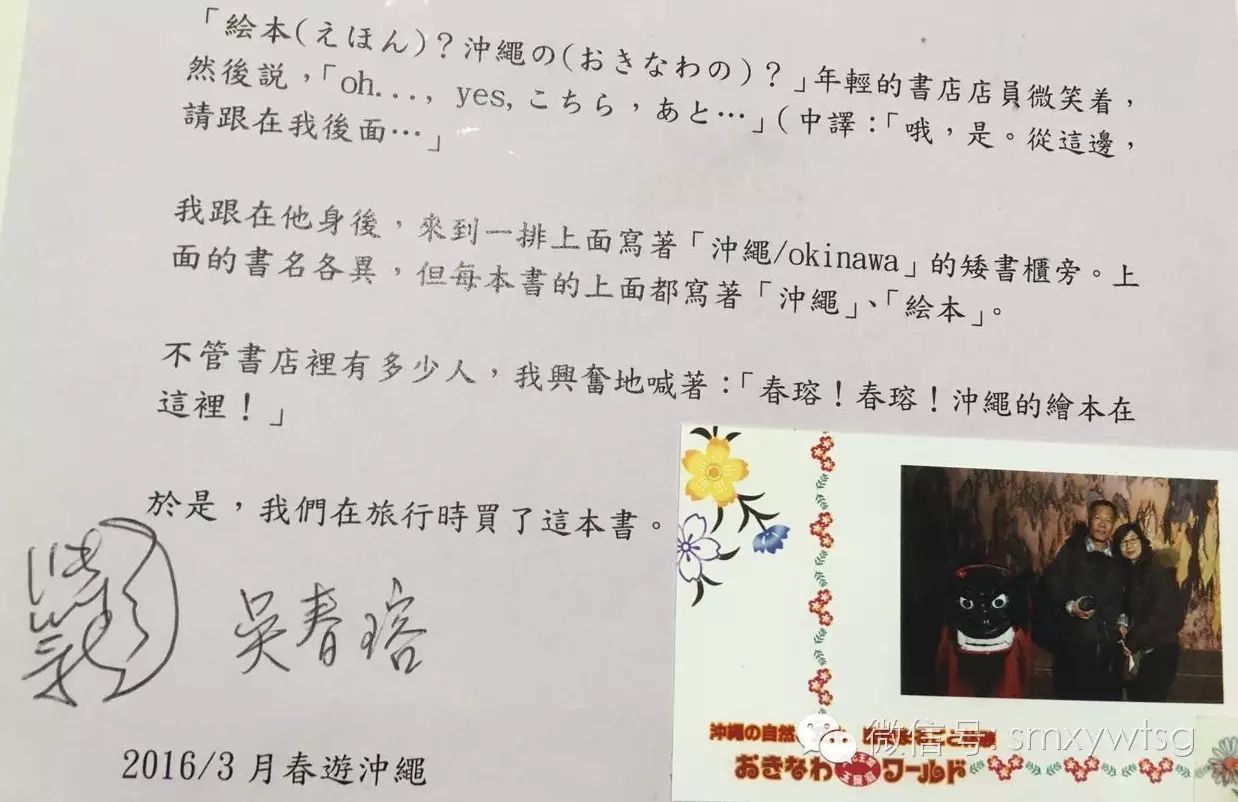 「絵本(えほん)？沖繩の(おきなわの)？」年輕的書店店員微笑着，
然後説，「oh..., yes, こちら，あと…」(中譯：「哦，是。從這邊，
請跟在我後面…」
我跟在他身後，來到一排上面寫著「沖繩/okinawa」的矮書櫃旁。上
面的書名各異，但每本書的上面都寫著「沖繩」、「絵本」。
不管書店裡有多少人，我興奮地喊著：「春瑢！春瑢！沖繩的繪本在
這裡！」
於是，我們在旅行時買了這本書。
吳春瑢
2016/3 月春遊沖繩
沖縄の自然
おきなわ
ワールド
微信号: smxywtsg